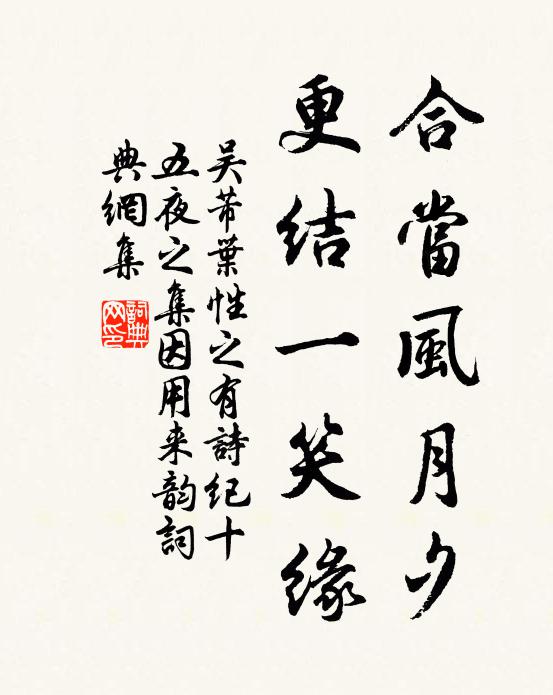 合當風月夕
更結一笑緣
吴芾葉性之有詩纪十
五夜之集因用来韵詞
典網集
詞典
网印